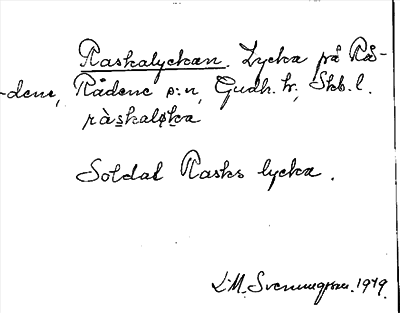 Raskalyckan. Lycka på Rå-
-dene, Rådene s:n, Gudh. h., Skb. l.
ràskaløka
Soldat Rasks lycka.
L.M. Svenungsson. 1949.